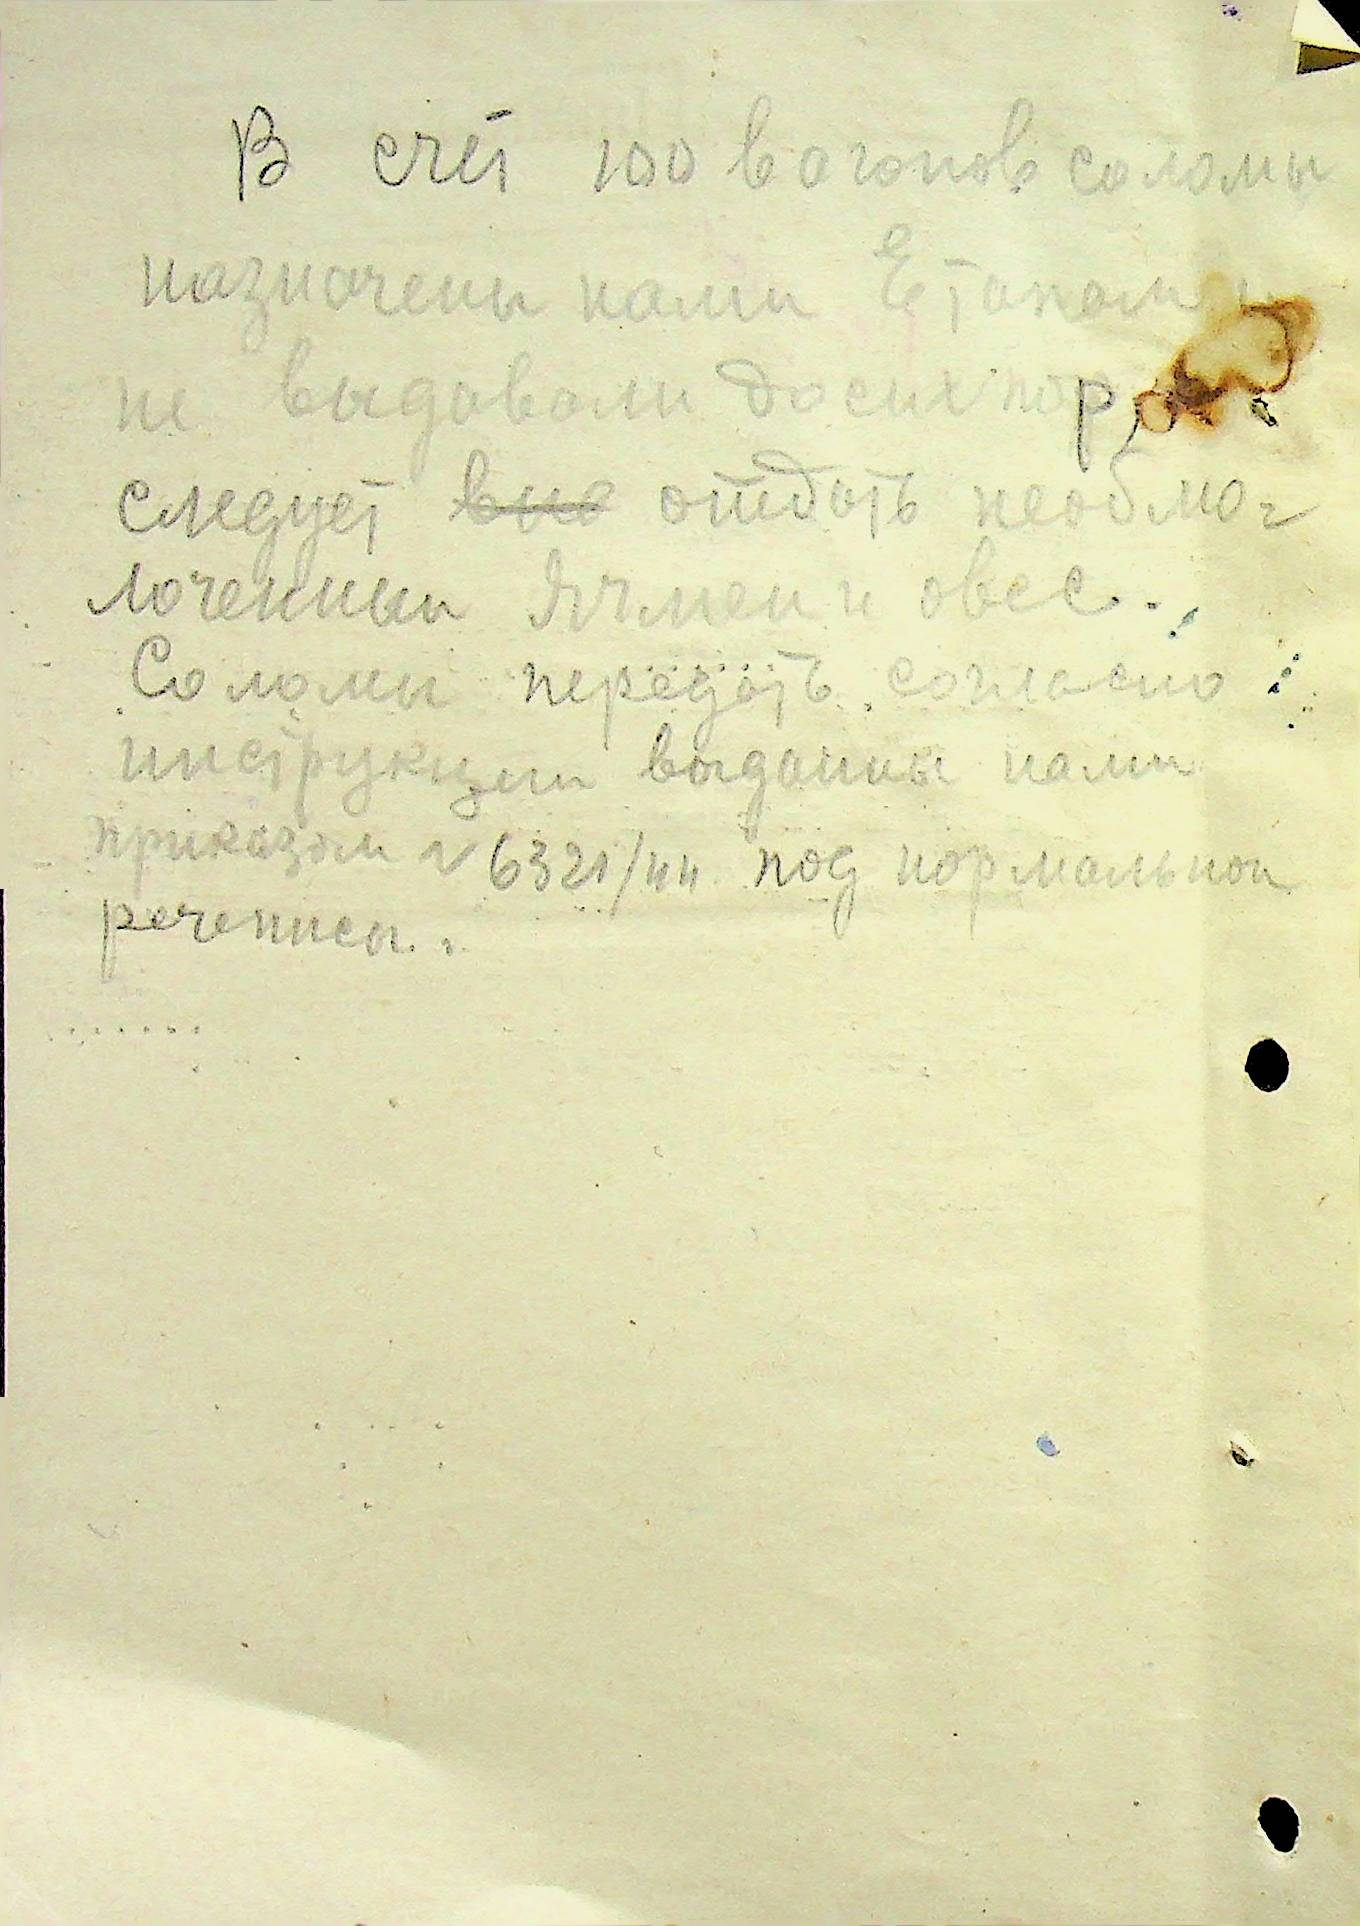 В счёт 100 вагонов соломы
назначены нами Етапом и
не выдавали до сих пор,
следует отдать необмо-
лоченныи ячмен и овес.
Соломы передать согласно
инструкции выданны нами
приказом N 6321/44 под нормальнои